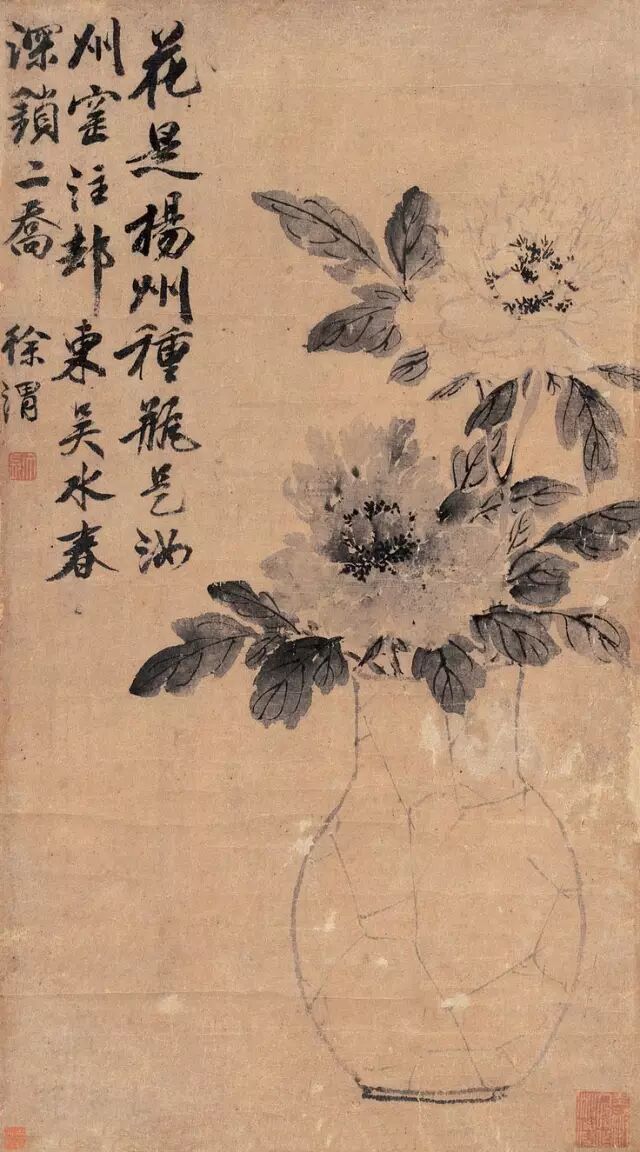 花是楊州種瓶是汝
州窑注却東吴水春
深鎖二喬
徐渭